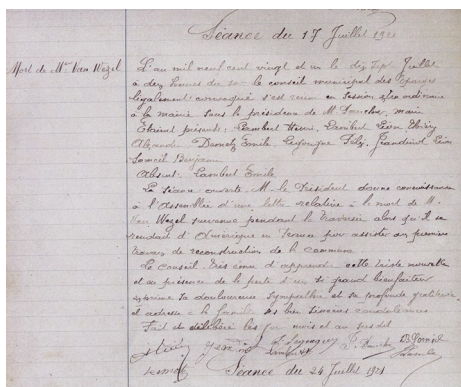 Séance du 17 Juillet 1921
Mort de Mr Van Wezel
L'an mil neuf cent vingt et un le dix sept Juillet
à dix heures du le conseil municipal des Eparges
légalement convoqué s'est réuni en session
à la mairie sous la présidence de M. maire
Etaient présents: Lambert Henri, Lambert Léon Thiéry
Alexandre Emile, Félix, Jeandinot Léon
Benjamin
Absent. Lambert Emile
La séance ouverte M. le Président donne connaissance
à l'Assemblée d'une lettre relative à la mort de M.
Van Wezel survenue pendant la traversée alors qu'il se
rendait d'Amérique en France pour assister aux premiers
travaux de reconstruction de la commune
Le Conseil très ému d'apprendre cette triste nouvelle
et en présence de la perte d'un si grand bienfaiteur
exprime sa douloureuse sympathie et sa profonde gratitude
et adresse à la famille ses bien sincères condoléances
Fait et délibéré les jour mois et an susdit
Lambert
Séance du 24 Juillet 1921